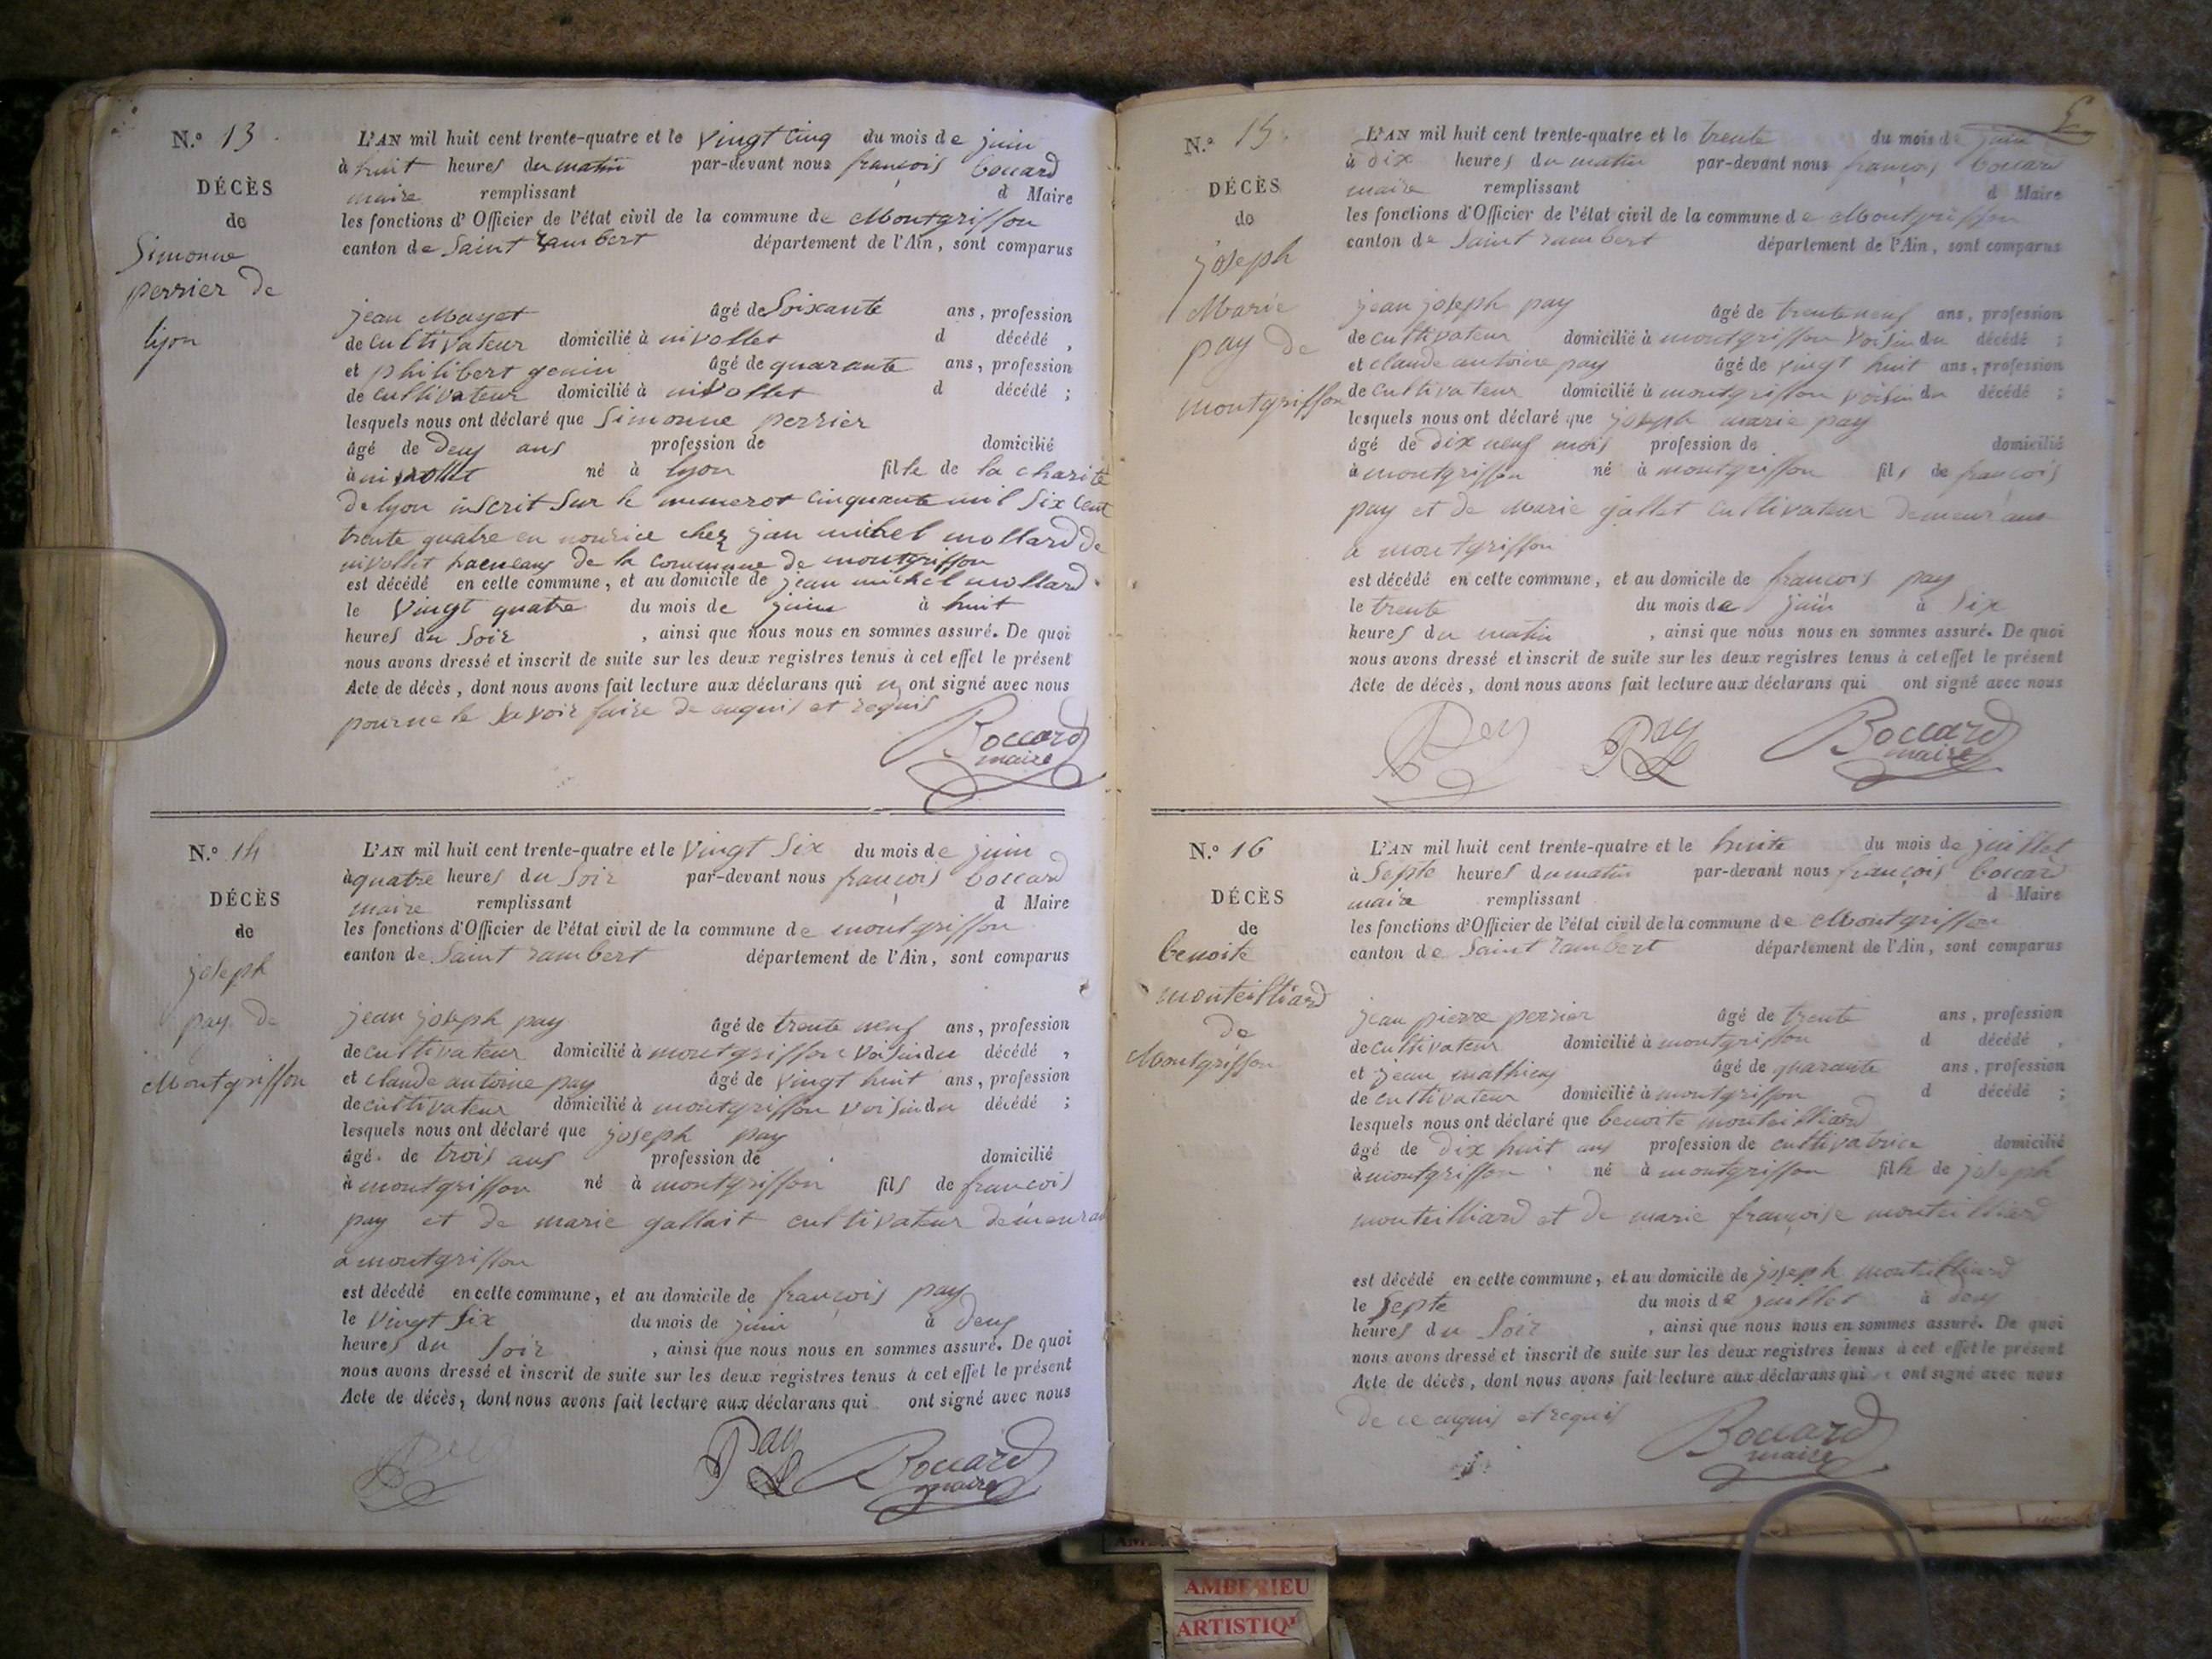 N.° 13
DÉCÈS
de
Simonne
perrier de
lyon
L'AN mil huit cent trente-quatre et le vingt cinq du mois de juin
à huit heures du matin par-devant nous françois boccard
maire remplissant d Maire
les fonctions d'Officier de l'état civil de la commune de Montgriffon
canton de Saint rambert département de l'Ain, sont comparus
jean Mayet âgé de Soixante ans, profession
de cultivateur domicilié à nivollet d décédé,
et philibert genin âgé de quarante ans, profession
de cultivateur domicilié à nivollet d décédé ;
lesquels nous ont déclaré que Simonne perrier
âgé de deuy ans profession de domicilié
à nivollet né à lyon fille de la charité
de lyon inscrit sur le numerot cinquante mil six cent
trente quatre en nourice chez jean michel mollard de
nivollet de la commune de montgriffon
est décédé en cette commune, et au domicile de jean michel mollard
le vingt quatre du mois de juin à huit
heures du soir , ainsi que nous nous en sommes assuré. De quoi
nous avons dressé et inscrit de suite sur les deux registres tenus à cet effet le présent
Acte de décès, dont nous avons fait lecture aux déclarans qui n ont signé avec nous
pour ne le savoir faire de enquis et requis
Boccard
maire
N.° 14
DÉCÈS
de
joseph
pay de
Montgriffon
L'AN mil huit cent trente-quatre et le vingt six du mois de juin
à quatre heures du soir par-devant nous françois boccard
maire remplissant d Maire
les fonctions d'Officier de l'état civil de la commune de montgriffon
canton de Saint rambert département de l'Ain, sont comparus
jean joseph pay âgé de trente neuf ans, profession
de cultivateur domicilié à montgriffon voisin du décédé ,
et claude antoine pay âgé de vingt huit ans, profession
de cultivateur domicilié à montgriffon voisin du décédé ;
lesquels nous ont déclaré que joseph pay
âgé de trois ans profession de domicilié
à montgriffon né à montgriffon fils de françois
pay et de marie gallait cultivateur
à montgriffon
est décédé en cette commune, et au domicile de françois pay
le vingt six du mois de juin à deuy
heures du soir , ainsi que nous nous en sommes assuré. De quoi
nous avons dressé et inscrit de suite sur les deux registres tenus à cet effet le présent
Acte de décès, dont nous avons fait lecture aux déclarans qui ont signé avec nous
Pay Boccard
maire
N.° 15
DÉCÈS
de
joseph
Marie
pay de
montgriffon
L'AN mil huit cent trente-quatre et le trente du mois de juin
à dix heures du matin par-devant nous françois boccard
maire remplissant d Maire
les fonctions d'Officier de l'état civil de la commune de Montgriffon
canton de Saint rambert département de l'Ain, sont comparus
jean joseph pay âgé de trente neuf ans, profession
de cultivateur domicilié à montgriffon voisin du décédé ;
et claude antoine pay âgé de vingt huit ans, profession
de cultivateur domicilié à montgriffon voisin du décédé ;
lesquels nous ont déclaré que joseph marie pay
âgé de dix neuf mois profession de domicilié
à montgriffon né à montgriffon fils de françois
pay et de Marie gallet cultivateur demeurant
à montgriffon
est décédé en cette commune, et au domicile de françois pay
le trente du mois de juin à six
heures du matin , ainsi que nous nous en sommes assuré. De quoi
nous avons dressé et inscrit de suite sur les deux registres tenus à cet effet le présent
Acte de décès, dont nous avons fait lecture aux déclarans qui ont signé avec nous
Pey Pay Boccard
maire
N.° 16
DÉCÈS
de
benoite
monteilliard
de
Montgriffon
L'AN mil huit cent trente-quatre et le huite du mois de juillet
à Septe heures du matin par-devant nous françois boccard
maire remplissant d Maire
les fonctions d'Officier de l'état civil de la commune de Montgriffon
canton de Saint rambert département de l'Ain, sont comparus
jean pierre perrier âgé de trente ans, profession
de cultivateur domicilié à montgriffon d décédé ,
et jean mathieu âgé de quarante ans, profession
de cultivateur domicilié à montgriffon d décédé ;
lesquels nous ont déclaré que benoite monteilliard
âgé de dix huit ans profession de cultivatrice domicilié
à montgriffon né à montgriffon fille de joseph
monteilliard et de marie françoise monteilliard
est décédé en cette commune, et au domicile de joseph monteilliard
le Septe du mois de juillet à deuy
heures du soir , ainsi que nous nous en sommes assuré. De quoi
nous avons dressé et inscrit de suite sur les deux registres tenus à cet effet le présent
Acte de décès, dont nous avons fait lecture aux déclarans qui ont signé avec nous
de ce enquis et requis
Boccard
maire
AMBERIEU
ARTISTIQ